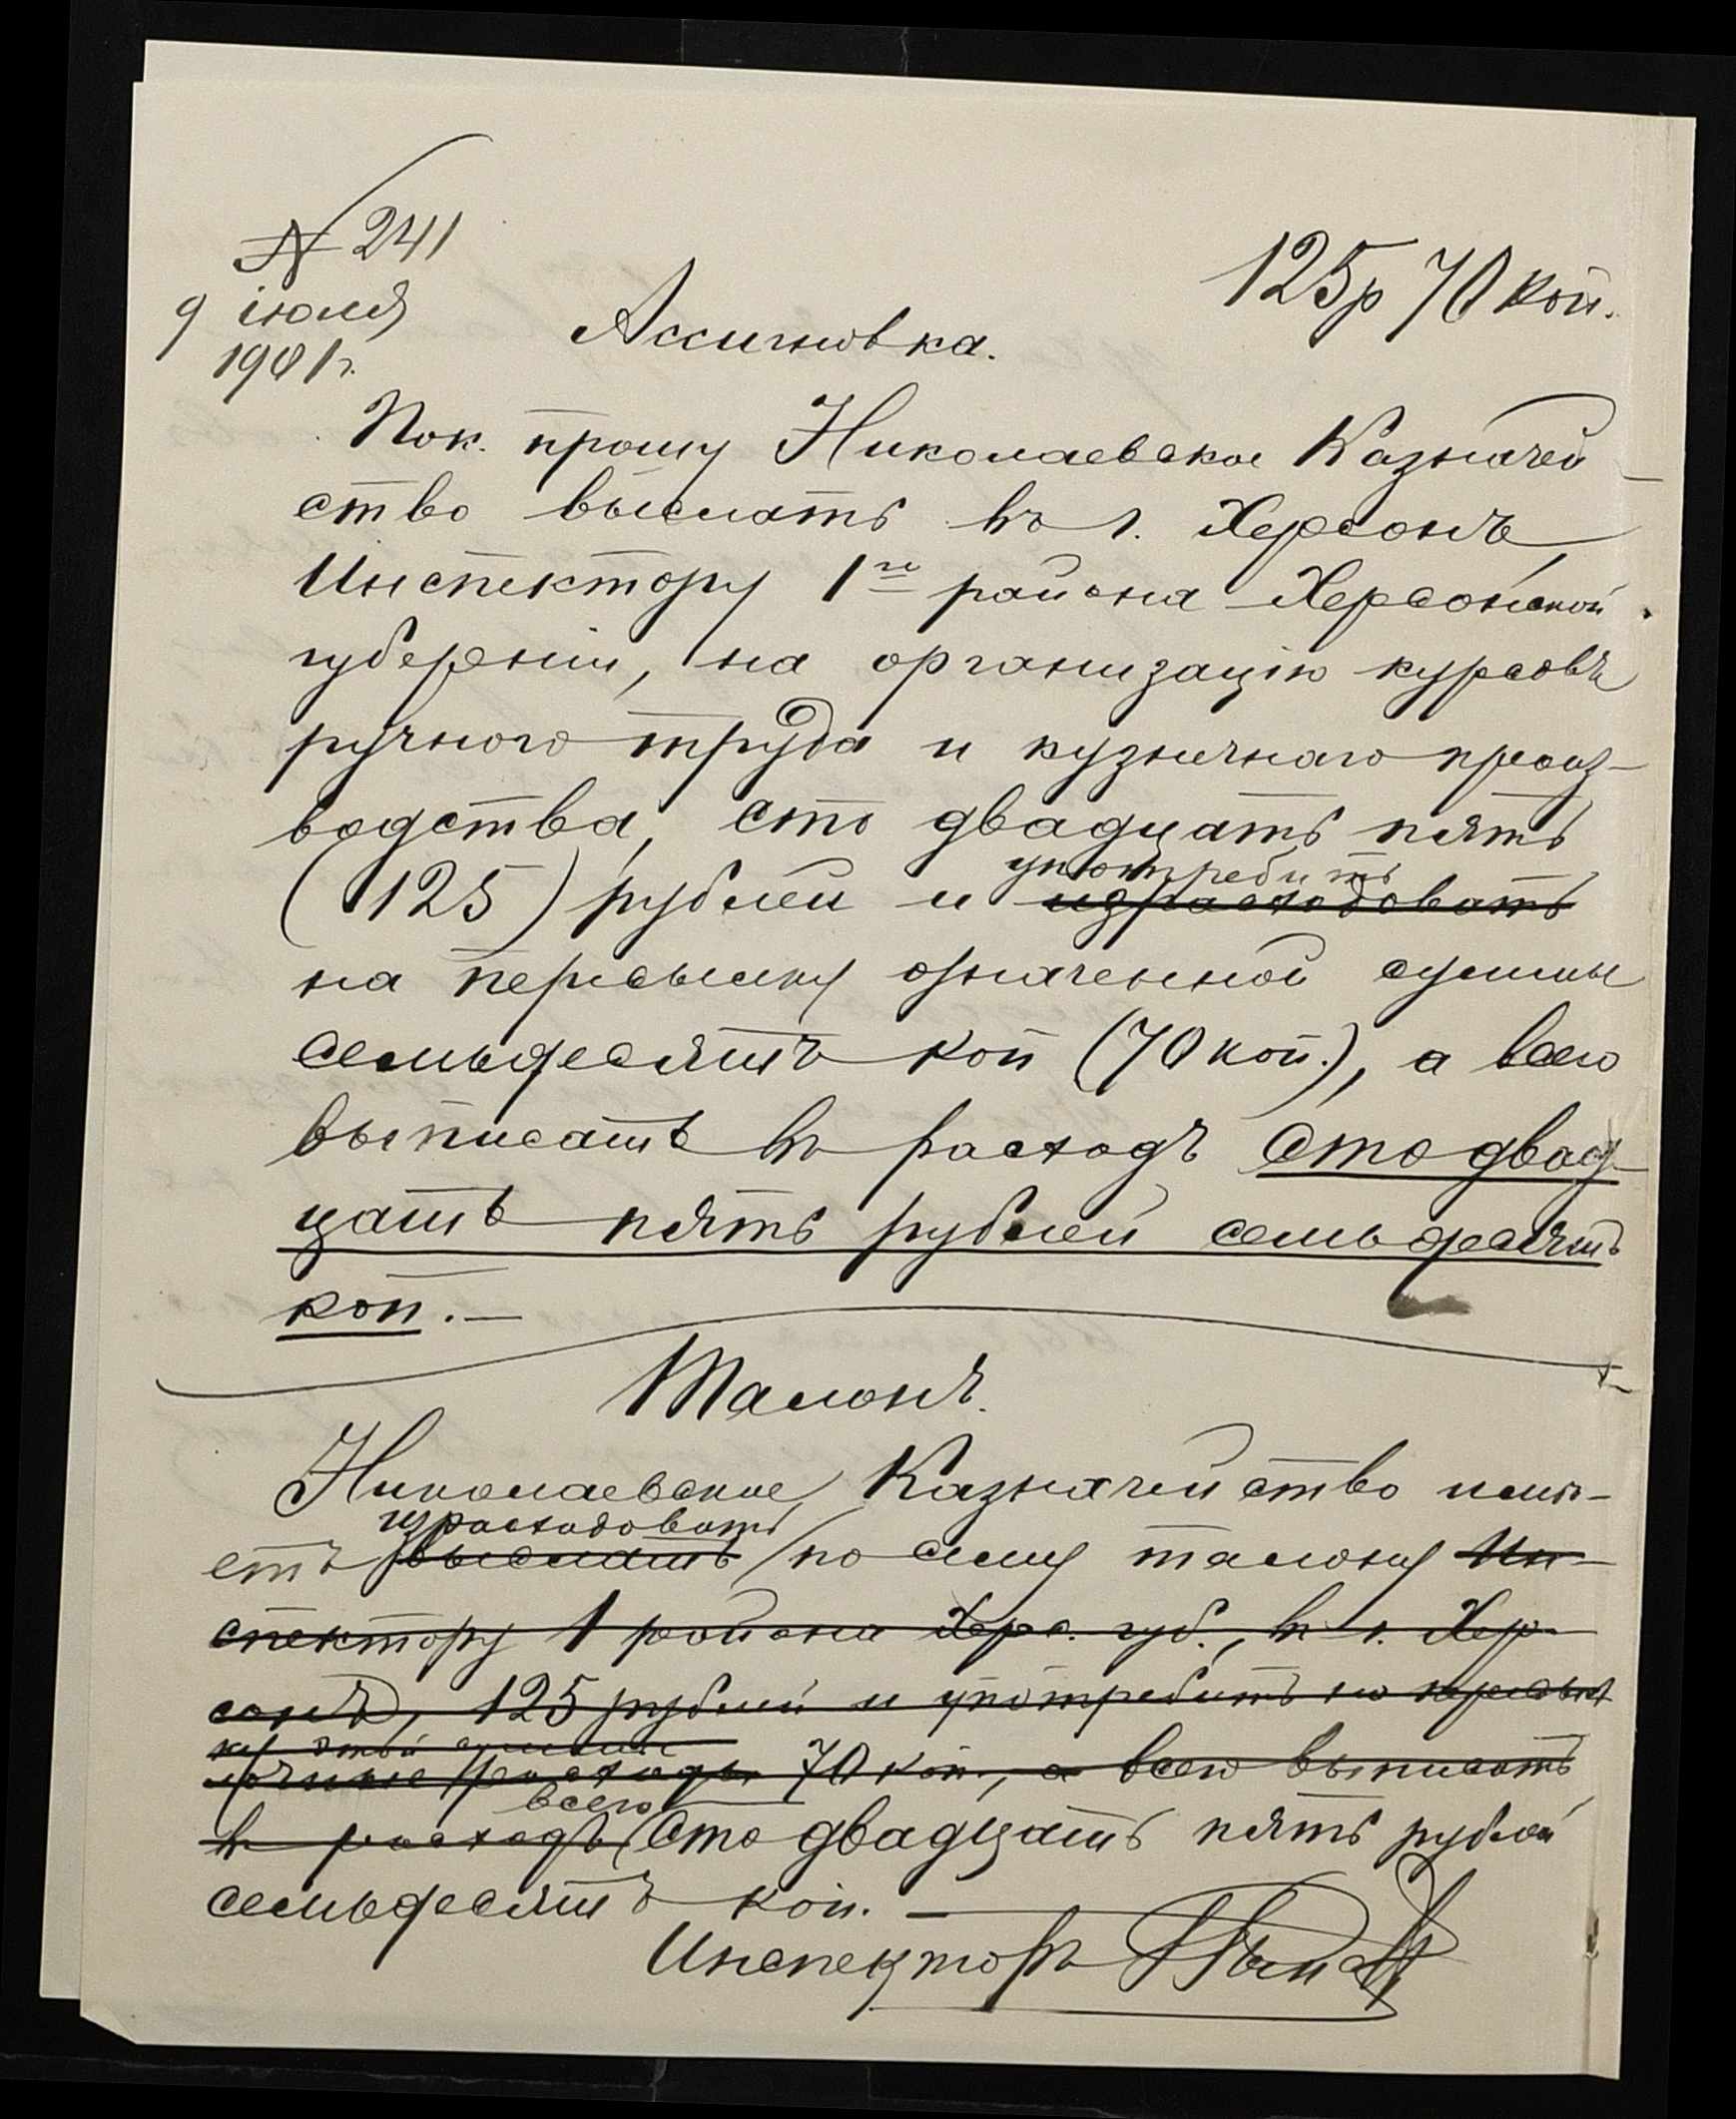 № 241
9 іюля
1901 г.
125 р 70 коп.
Ассигновка.
Пок. прошу Николаевское Казначей-
ство выслать въ г. Херсонъ,
Инспектору 1го района Херсонской
губерніи, на организацію курсовъ
ручного труда и кузнечнаго произ-
водства, сто двадцать пять
употребить
(125) рублей и израсходовать
на пересылку означенной суммы
семьдесятъ коп (70 коп.), а всего
выписать въ расходъ сто двад-
цать пять рублей семьдесятъ
коп. —
Талонъ.
Николаевское Казначейство имѣ-
израсходовать
етъ выслать по сему талону Ин-
спектору 1 района Херс. губ., въ г. Хер-
сонъ, 125 рублей и употребить на пересыл-
ку этой суммы
расходы 70 коп., а всего выписать
всего
въ расходъ сто двадцать пять рублей
семьдесятъ коп. —
Инспекторъ